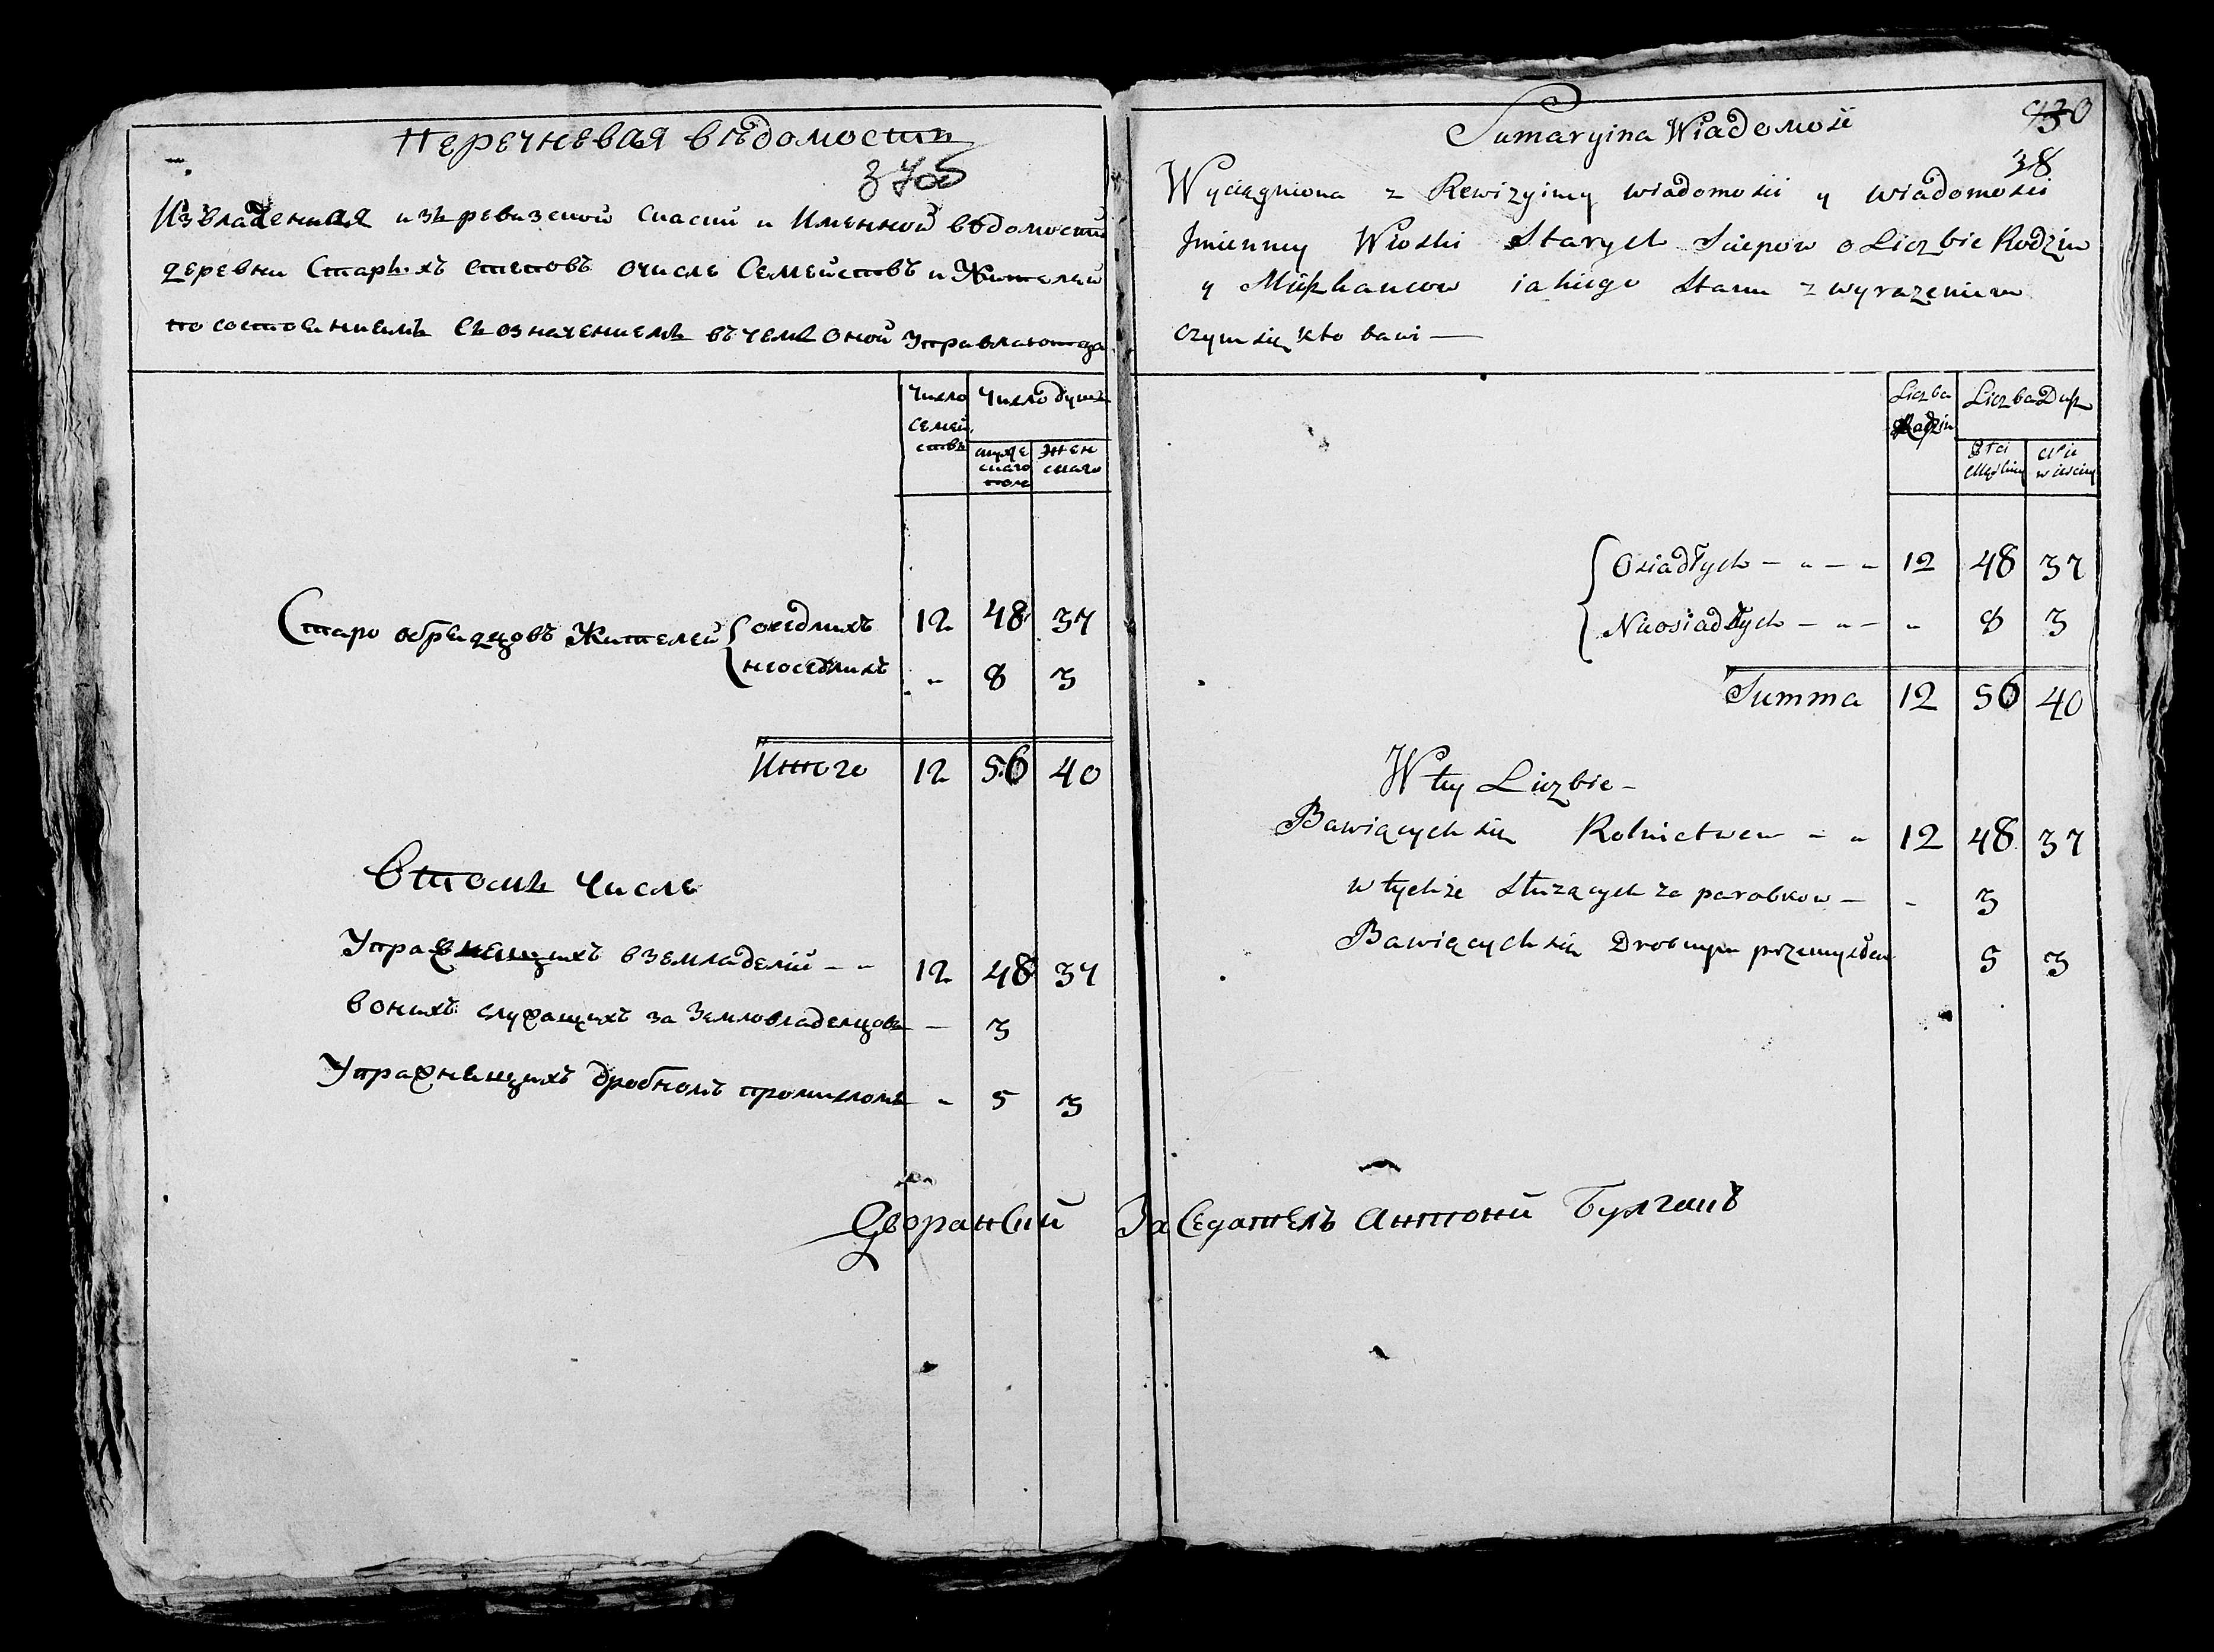 Перечневая вѣдомость
Извладенная изъ ревизской скаски и Именной вѣдомости
деревни Старыхъ степовъ очисле Семействъ и Жителей
по состоянниемъ съ означениемъ въ чемъ оной Управлаютца
Число семей ствъ
Число душъ
муже скаго пола
жен скаго
Старо обрядцовъ Жителей
оседлихъ 12 48 37
неоседлихъ " 8 3
Итого 12 56 40
Втомъ Числе
Упражнящихъ вземладелій - " 12 48 37
вонихъ служащихъ за Земловладелцовъ - 3
Упражнящихъ дробномъ промисломъ " 5 3
Дворанский Заседатель Антоний Булгакъ
Sumaryina Wiadomość
430
38
Wyciągniona z Rewizyiney wiadomości y wiadomości
Jmienney Wioski Starych Sciepow o Liczbie Rodzin
y Mieszkancow iakiego Stanu z wyrazeniem
czym się kto bawi —
Liczba Rodzin
Liczba Dusz
Płci Męskiey
Nie wiesciey
Osiadłych - " - " 12 48 37
Nieosiadłych - " - " 8 3
Summa 12 56 40
W tey Liczbie -
Bawiących się Rolnictwem - " 12 48 37
w tychże słuzących za parobkow - - 3
Bawiących się Drobnym przemysłem 5 3